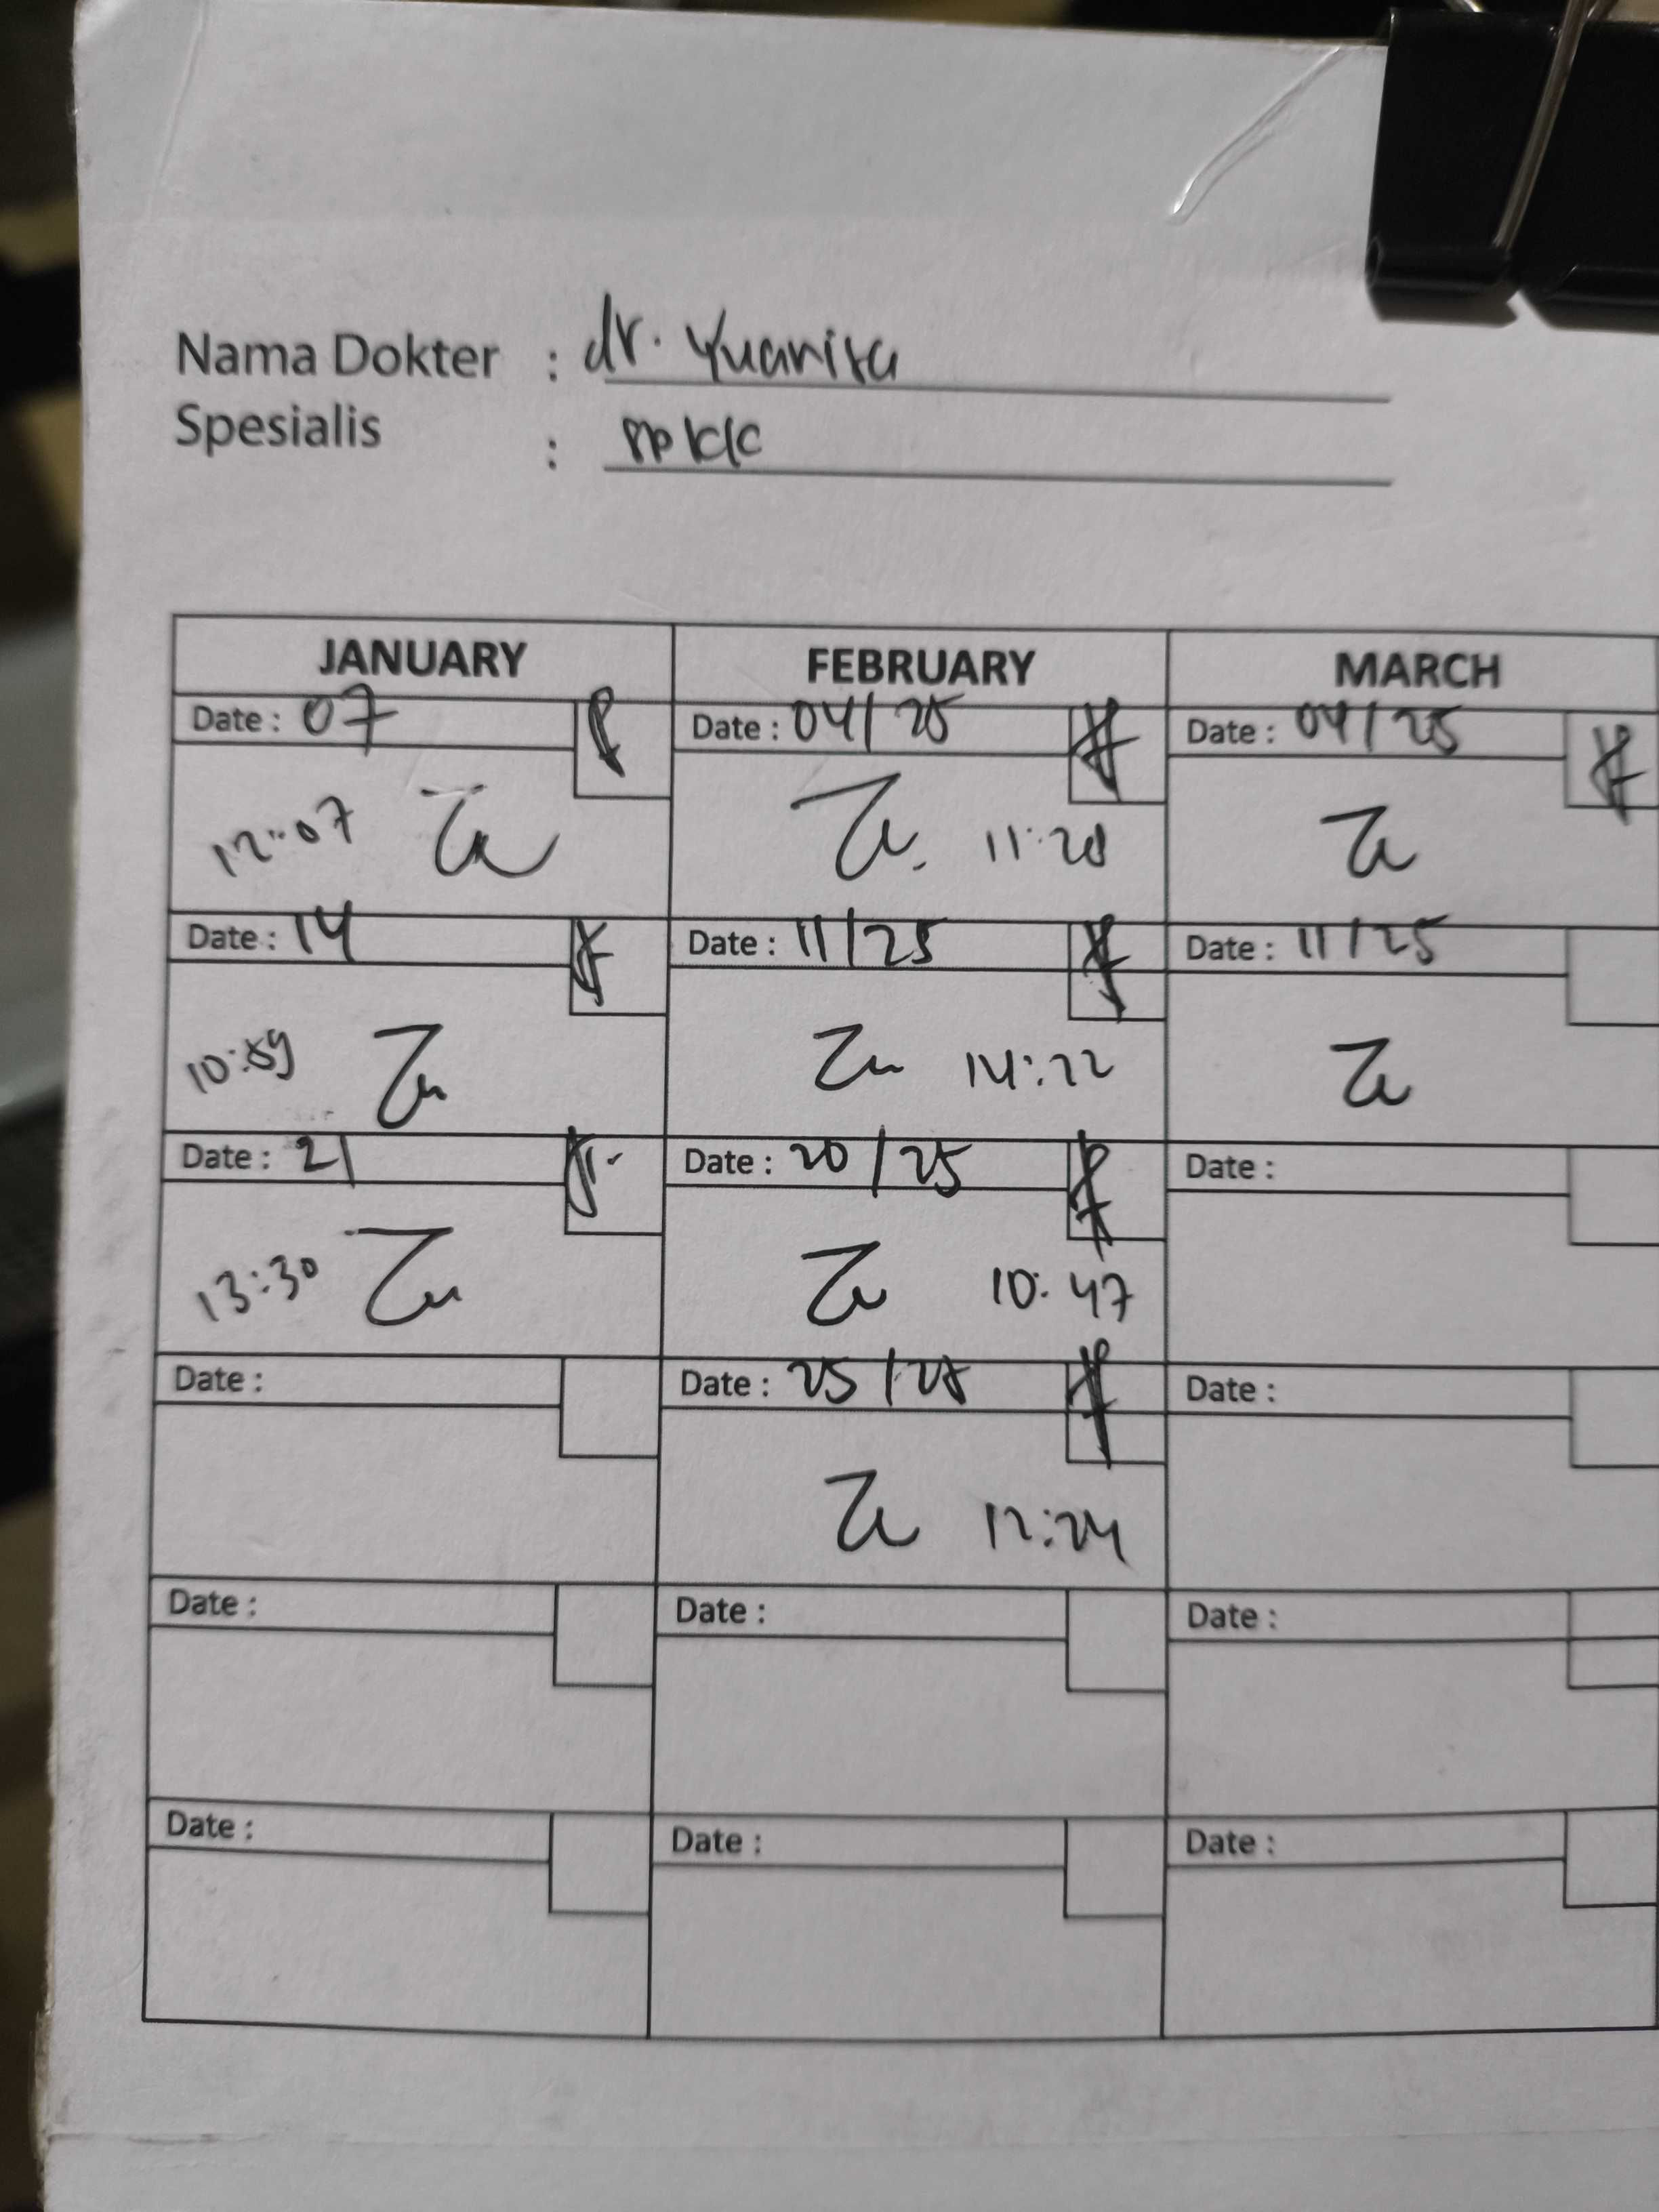 Nama Dokter : dr. Yuanita
Spesialis :
JANUARY FEBRUARY MARCH
Date : 07 Date : 04/25 Date : 04/25
12:07 11:28
Date : 14 Date : 11/25 Date : 11/25
10:59 14:22
Date : 21 Date : 20/25 Date :
13:30 10:47
Date : Date : 25/25 Date :
12:24
Date : Date : Date :
Date : Date : Date :